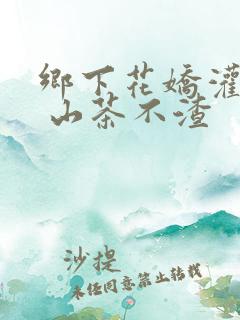 鄉下花嬌灌
山茶不渣
沙提
未經同意禁止轉載